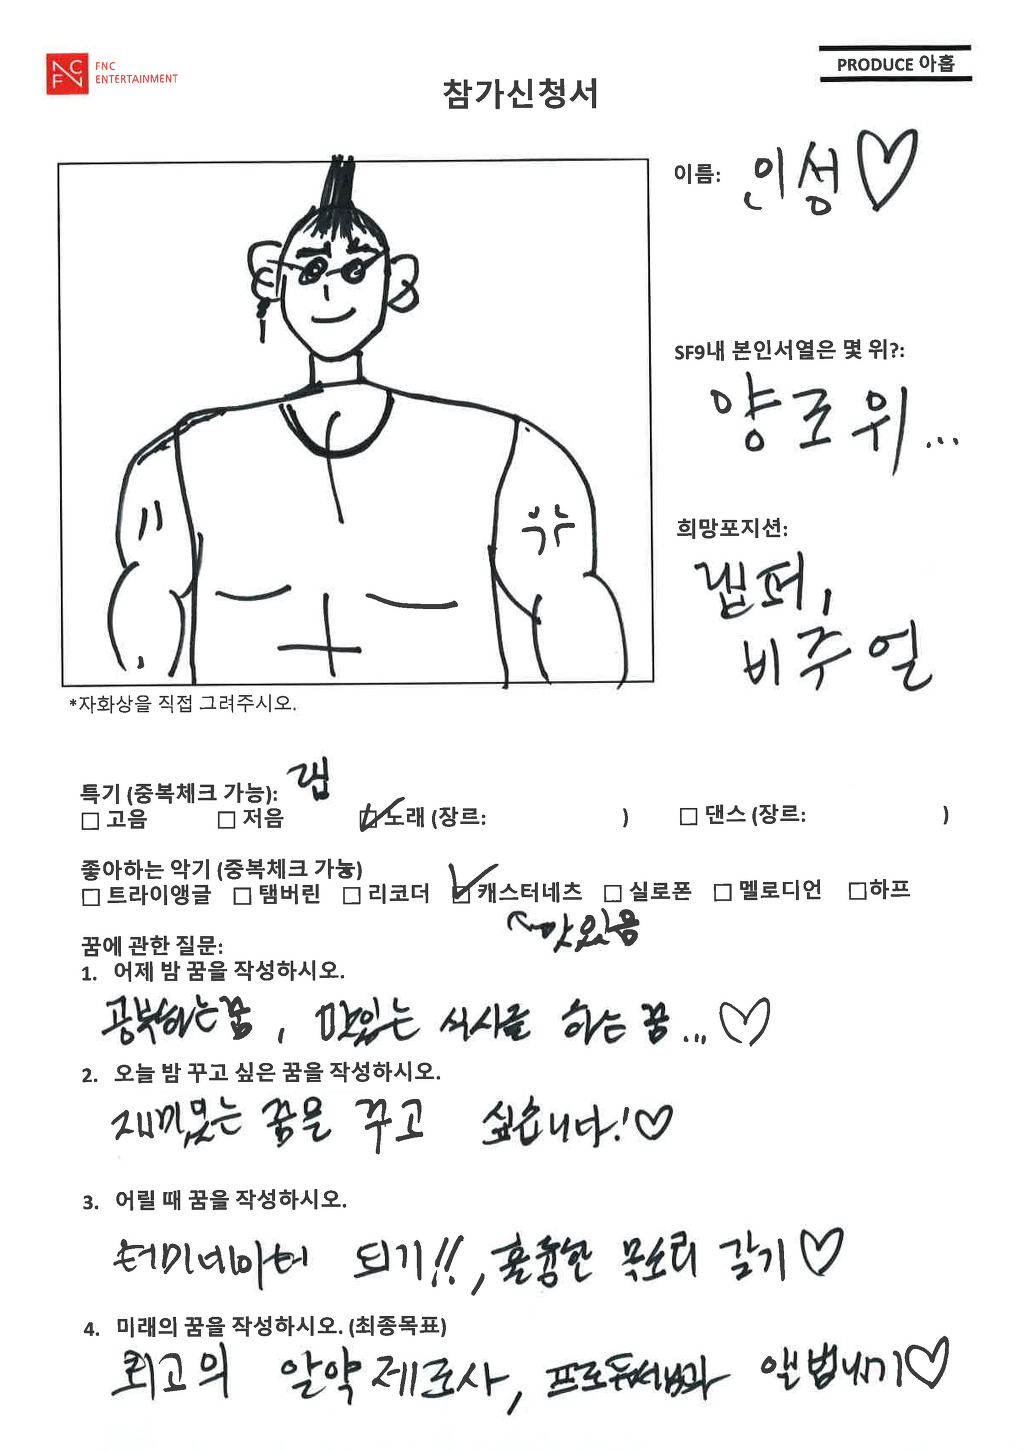 FNC
ENTERTAINMENT
PRODUCE 아홉
참가신청서
이름: 인성♡
SF9내 본인서열은 몇 위?:
양로위...
희망포지션:
랩퍼,
비주얼
*자화상을 직접 그려주시오.
특기 (중복체크 가능): 랩
□ 고음 □ 저음 ☑ 노래 (장르: ) □ 댄스 (장르: )
좋아하는 악기 (중복체크 가능)
□ 트라이앵글 □ 탬버린 □ 리코더 ☑ 캐스터네츠 □ 실로폰 □ 멜로디언 □하프
맛있음
꿈에 관한 질문:
1. 어제 밤 꿈을 작성하시오.
공부하는꿈, 맛있는 식사를 하는 꿈...♡
2. 오늘 밤 꾸고 싶은 꿈을 작성하시오.
재미있는 꿈을 꾸고 싶습니다!♡
3. 어릴 때 꿈을 작성하시오.
터미네이터 되기!!, 훌륭한 목소리 갖기♡
4. 미래의 꿈을 작성하시오. (최종목표)
최고의 알약 제조사, 프로듀서님과 앨범내기♡